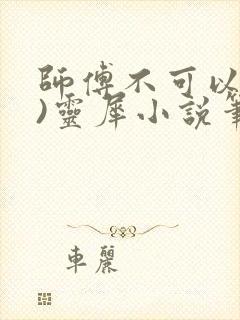 師傅不可以
)靈犀小說筆
車麗